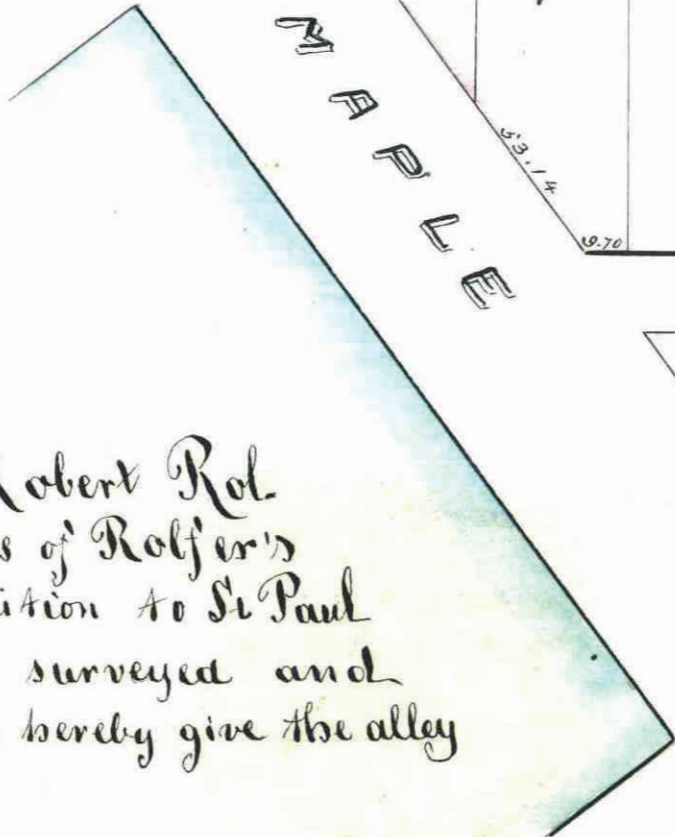 MAPLE
53.14
9.70
Robert Rol-
s of Rolfer's
ition to St Paul
surveyed and
hereby give the alley